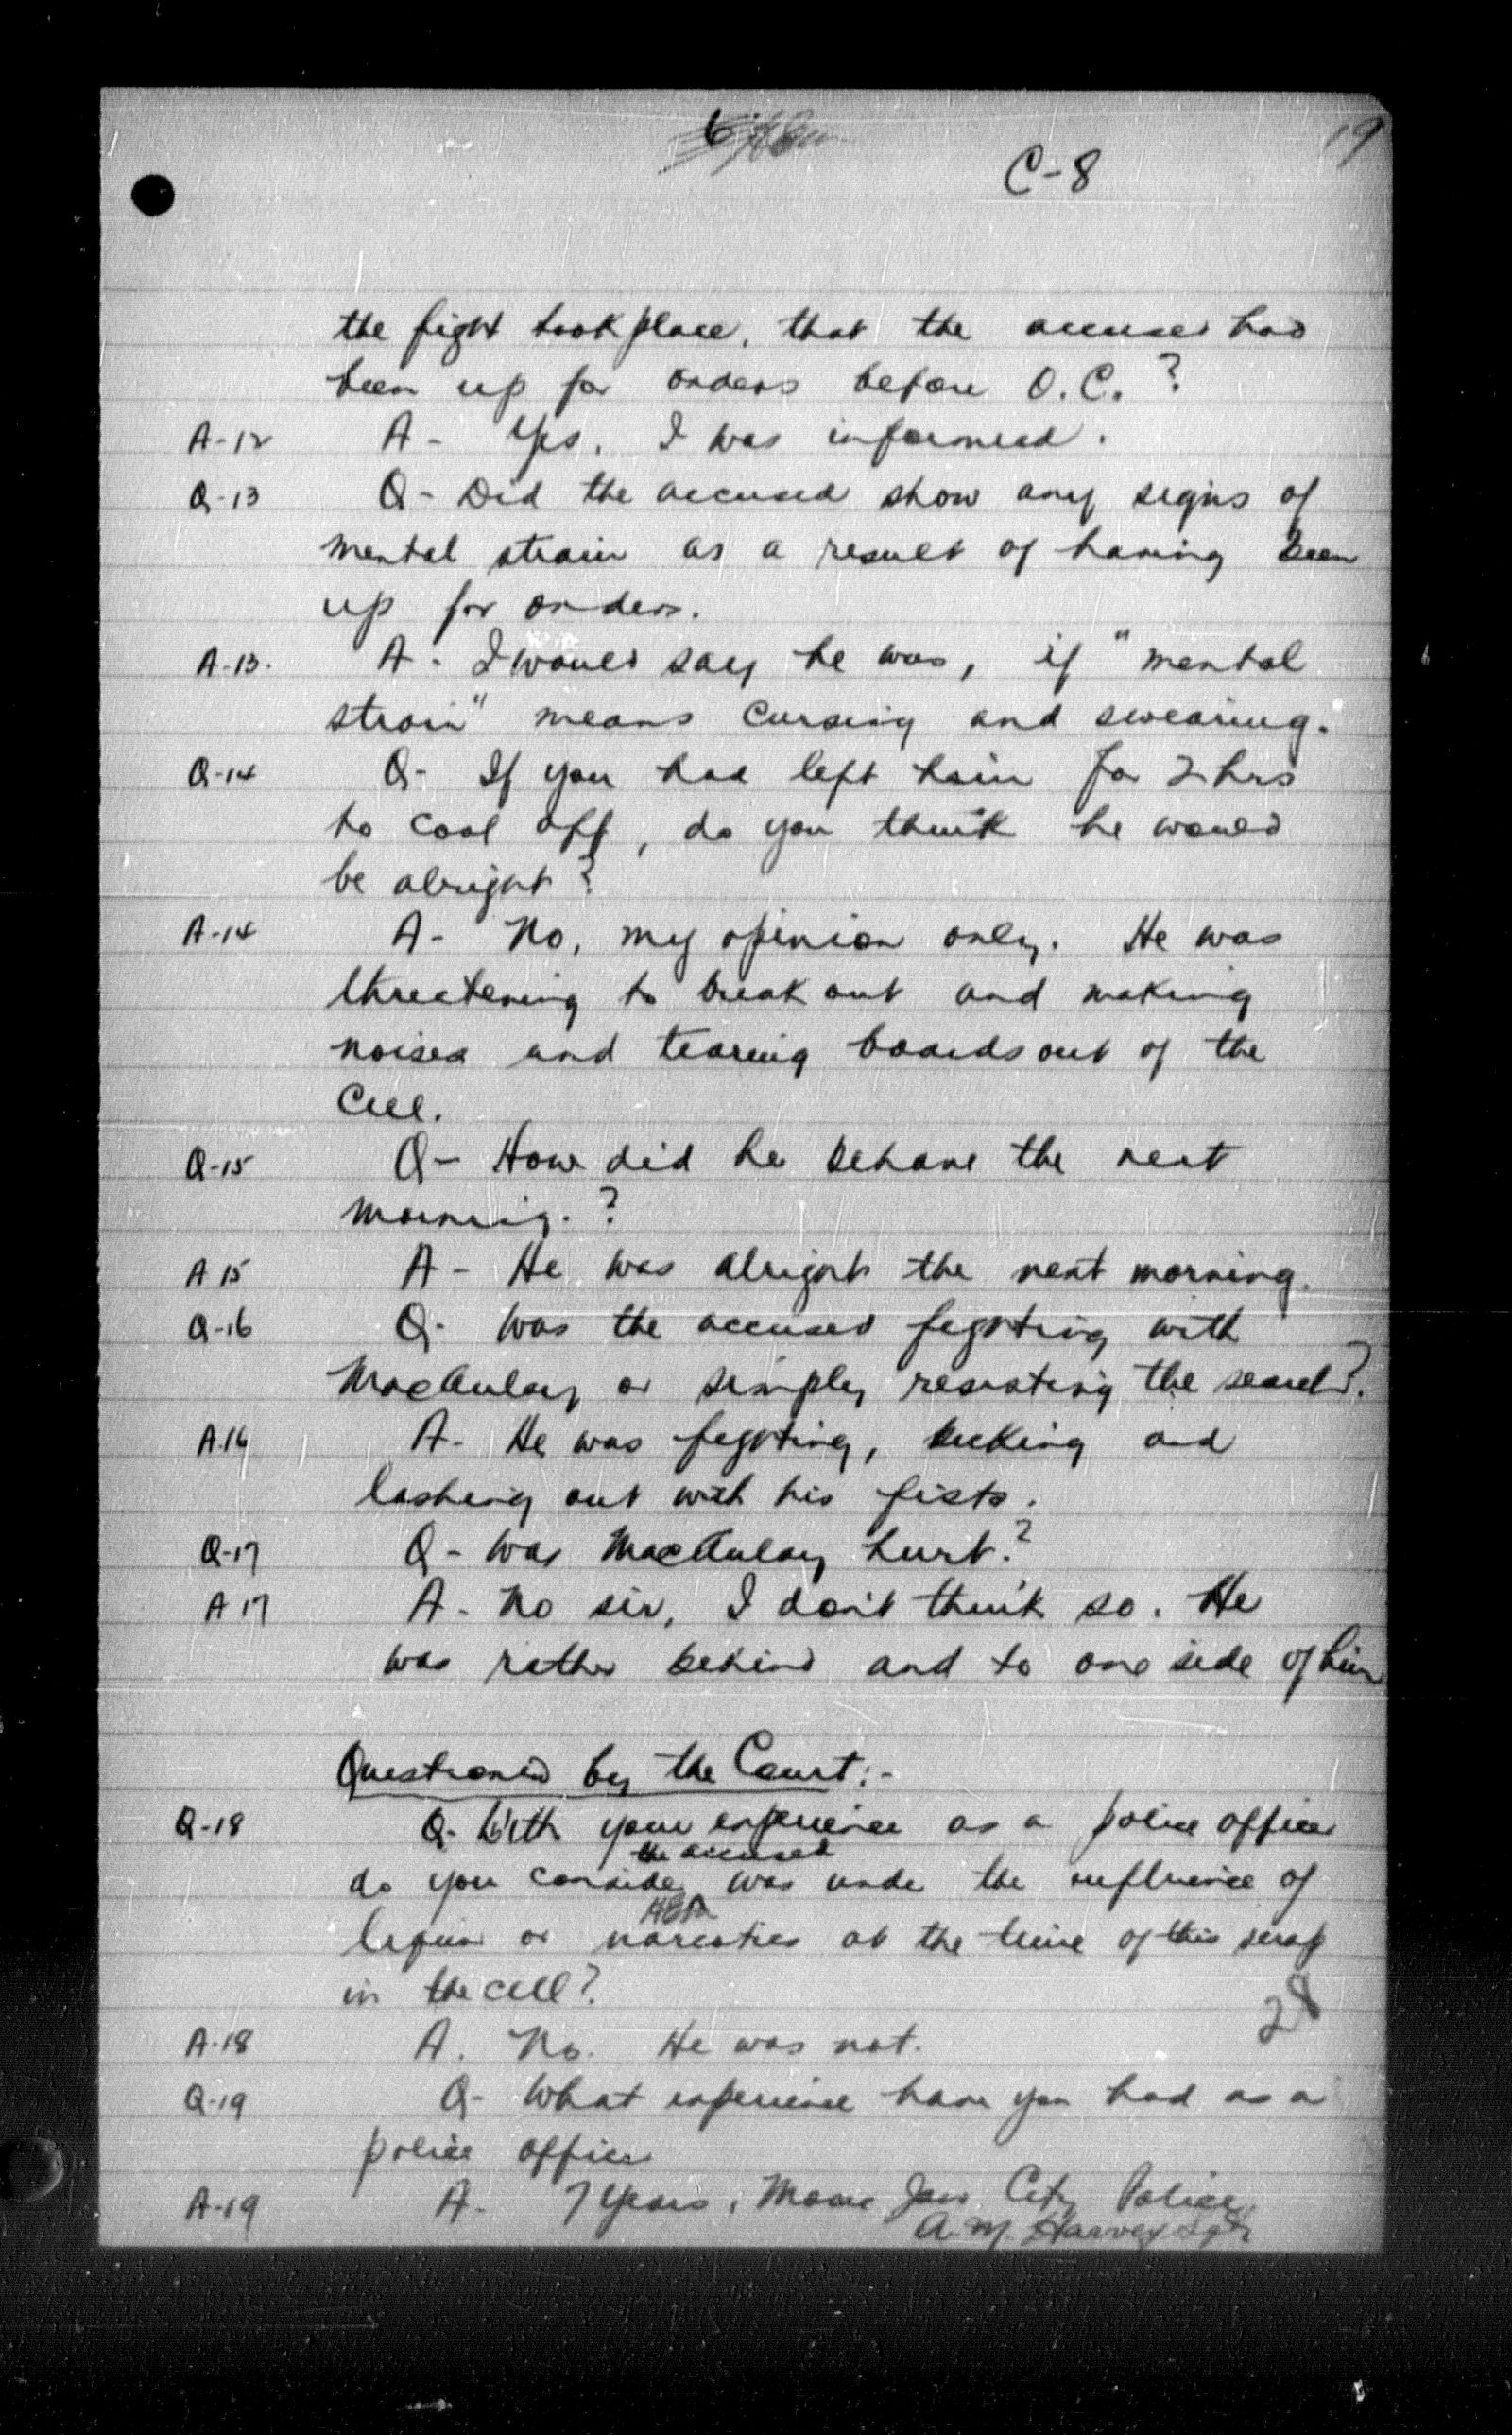 6
19
C-8
the fight took place, that the accused had
been up for orders before O.C.?
A-12 A - Yes, I was informed.
Q-13 Q - Did the accused show any signs of
mental strain as a result of having been
up for orders.
A-13. A - I would say he was, if "mental
strain" means cursing and swearing.
Q-14 Q - If you had left him for 2 hrs
to cool off, do you think he would
be alright?
A-14 A - No, my opinion only. He was
threatening to break out and making
noises and tearing boards out of the
cell.
Q-15 Q - How did he behave the next
morning.?
A 15 A - He was alright the next morning.
Q-16 Q - Was the accused fighting with
MacAulay or simply resisting the search?
A.16 A - He was fighting, kicking and
lashing out with his fists.
Q-17 Q - Was MacAulay hurt?
A 17 A - No sir, I don't think so. He
was rather behind and to one side of him
Questioned by the Court:-
Q-18 Q - With your experience as a police officer
the accused
do you consider was under the influence of
liquor or narcotics at the time of this scrap
in the cell?
28
A-18 A. No. He was not.
Q-19 Q - What experience have you had as a
police officer
A-19 A - 7 Years, Moose Jaw City Police.
A. M. Harvey Sgt